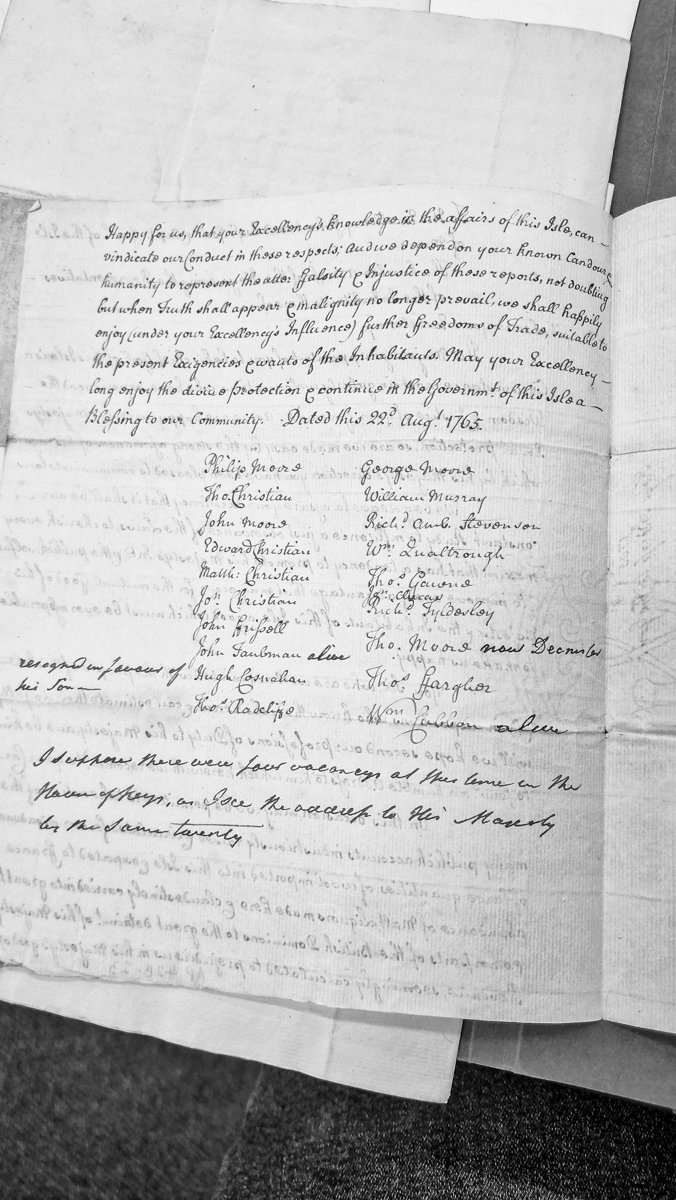 Happy for us, that your Excellency's knowledge in the affairs of this Isle, can
vindicate our Conduct in these respects; And we depend on your known Candour &
humanity to represent the utter ffalsity & Injustice of these reports, not doubting
but when Truth shall appear & malignity no longer prevail, we shall happily
enjoy (under your Excellency's Influence) further ffreedoms of Trade, suitable to
the present Exigencies & wants of the Inhabitants. May your Excellency
long enjoy the divine Protection & continue in the Governmt. of this Isle a
Blessing to our Community. Dated this 22d. Augt. 1765.
Philip Moore
Tho. Christian
John Moore
Edward Christian
Matth: Christian
Jon. Christian
John ffrissell
John Taubman alive
resigned in favour of
his Son
Hugh Cosnahan
Thos. Radcliffe
George Moore
William Murray
Richd. Amb. Stevenson
Wm. Qualtrough
Thos. Gawne
Jn. Clucas
Richd. Tyldesley
Tho. Moore now Deemster
Thos. ffargher
Wm. Cubbon alive
I suppose there were four vacancys at this time in the
House of Keys, as I see the address to His Majesty
by the same twenty